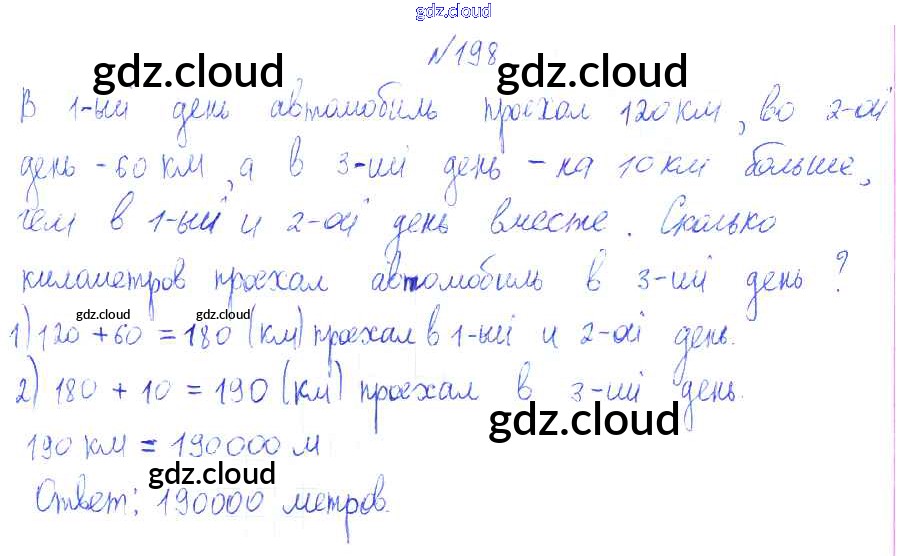 gdz.cloud
№198
gdz.cloud gdz.cloud
В 1-ый день автомобиль проехал 120 км, во 2-ой
день - 60 км, а в 3-ий день - на 10 км больше,
чем в 1-ый и 2-ой день вместе. Сколько
километров проехал автомобиль в 3-ий день?
gdz.cloud gdz.cloud
1) 120 + 60 = 180 (км) проехал в 1-ый и 2-ой день.
2) 180 + 10 = 190 (км) проехал в 3-ий день.
gdz.cloud
190 км = 190000 м
gdz.cloud
Ответ: 190000 метров.
gdz.cloud